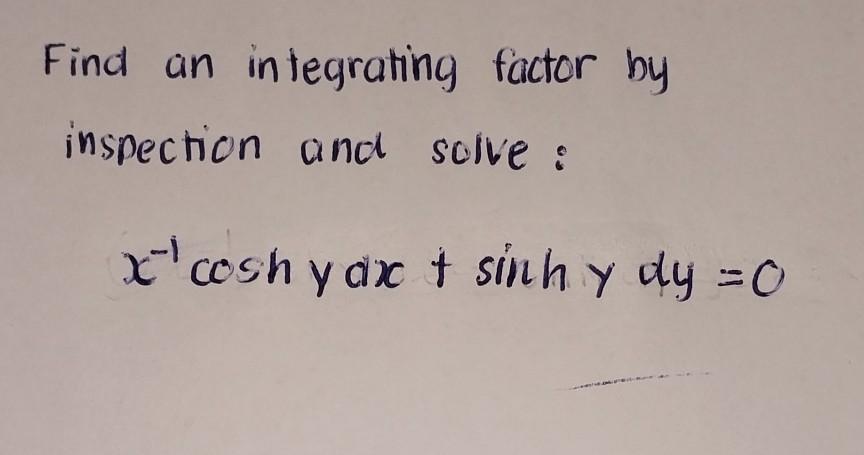 Find an integrating factor by
inspection and solve :
x⁻¹ cosh y dx + sinh y dy = 0